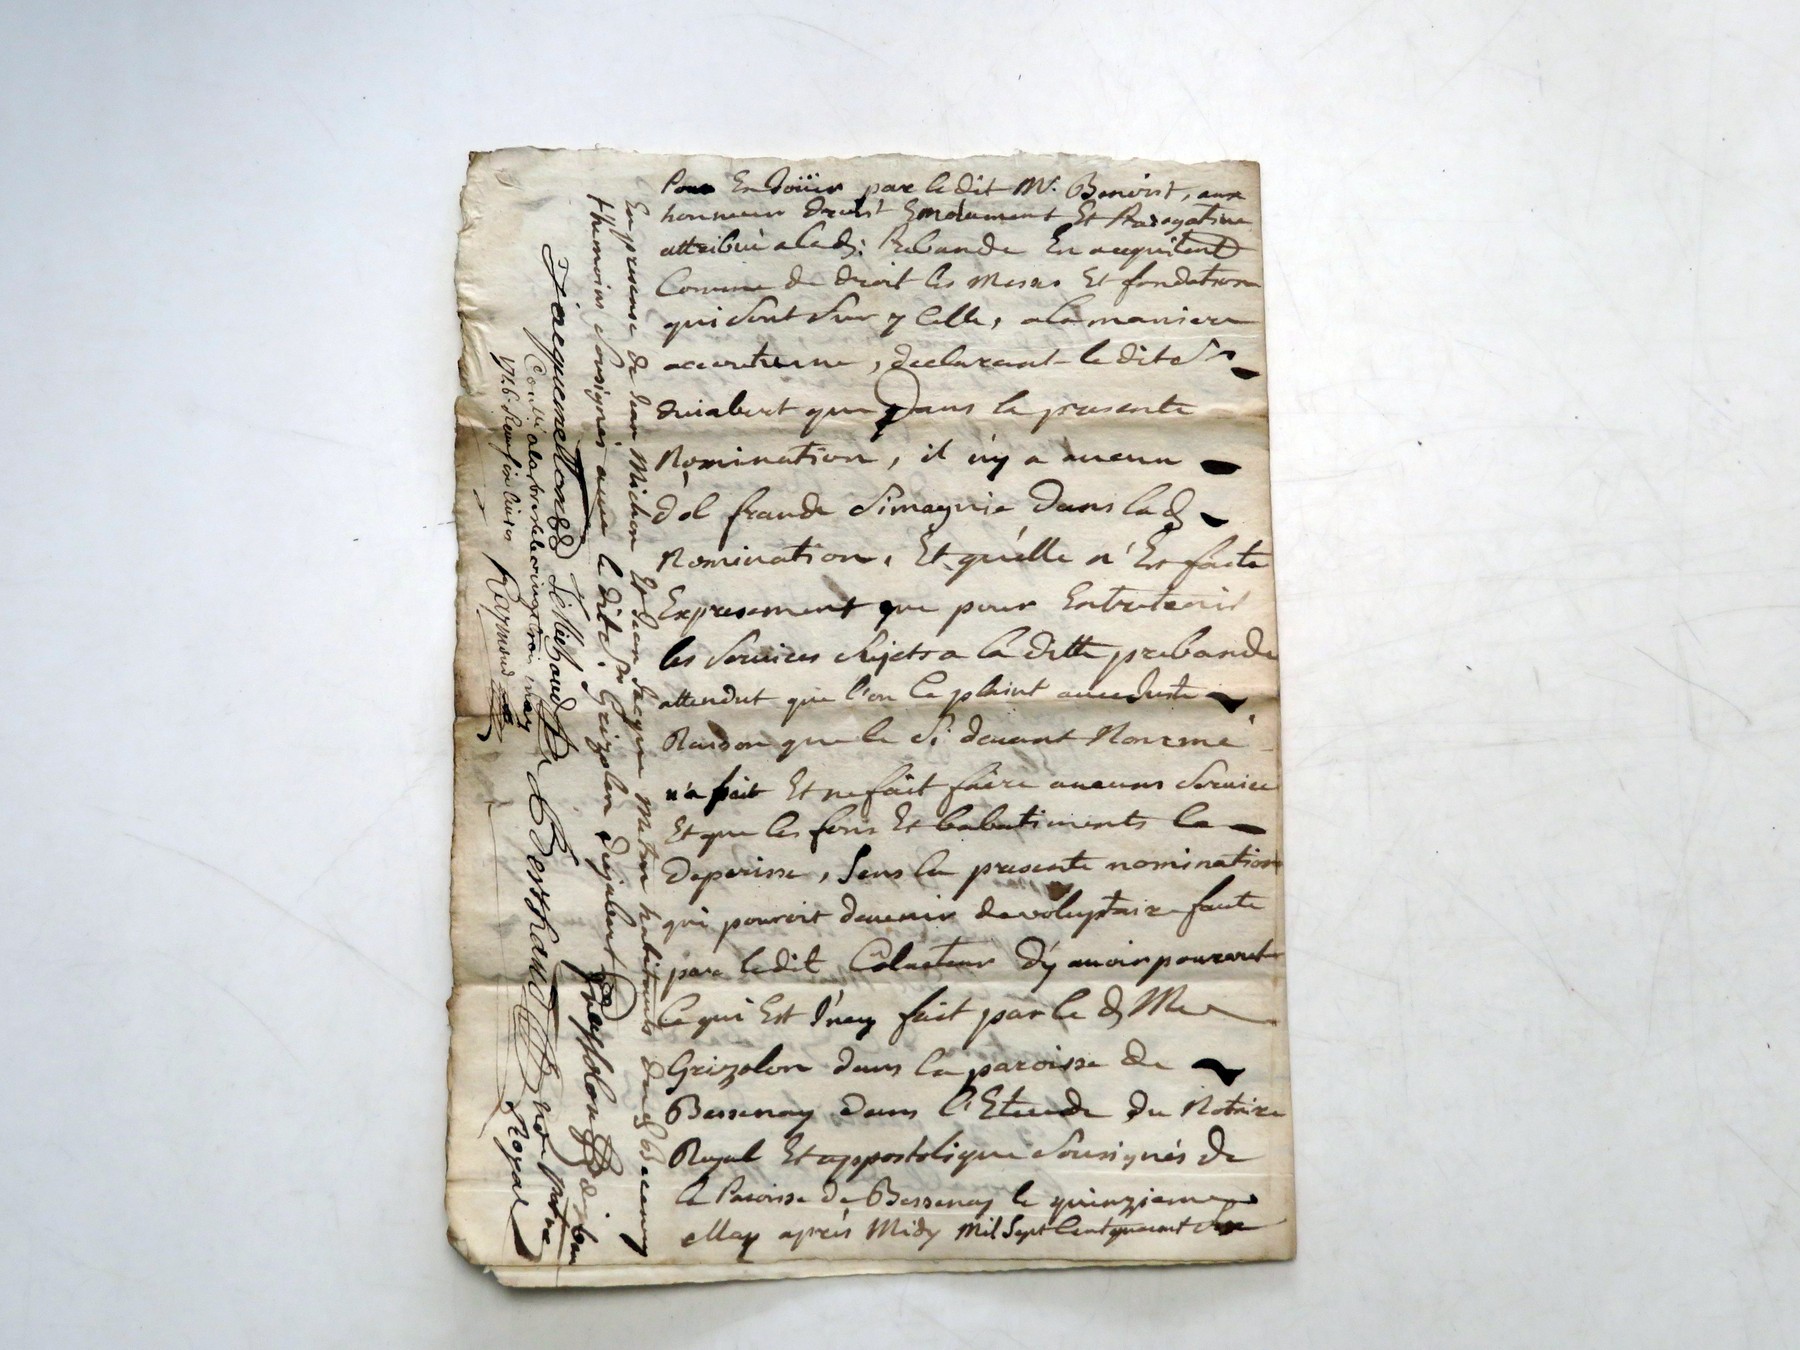 Pour En Joüir par le dit Mr. Benoist, aux
honneur droist Emolument Et Prerogative
attribué a lad: Prebande En acquitent
Comme de droit les Messes Et fondations
qui sont sur y Celle, a la maniere
accoutume, declarant le dit Sr
dujabert que Dans la presente
Nomination, il n'y a aucun
dol fraude Simaynie Dans lad
Nomination, Et qu'elle n'Est faite
Expresement que pour Entretenir
les Services Sujets a la ditte prebande
attendut que l'on Ce plaint avec Juste
Raison que le Si devant Nommé
n'a fait Et ne fait faire aucuns Service
Et que les fons Et les batiments Ce
deperisse, Sens la presente nomination
qui pouroit devenir devoluptaire faute
par ledit Colacteur d'y avoir pourvut
Ce qui Est Ainsy fait par le d Me
Grizolon dans la paroisse de
Bessenay dans l'Etude du Notaire
Royal Et appostolique Sousignés de
la Paroisse de Bessenay le quinzieme
May après Midy Mil Sept Cent quarant Six
En presence de Jean Michon Et Jean Jacque Meton habitants dud Becenay
themoins Sousignés avec le dit Sr Grizolon dujabert
Jacquemetton J. Michaud Berthaud
not Royal
Conllé a larbresle le vingt trois may
1746. Reçu six livres Raymond